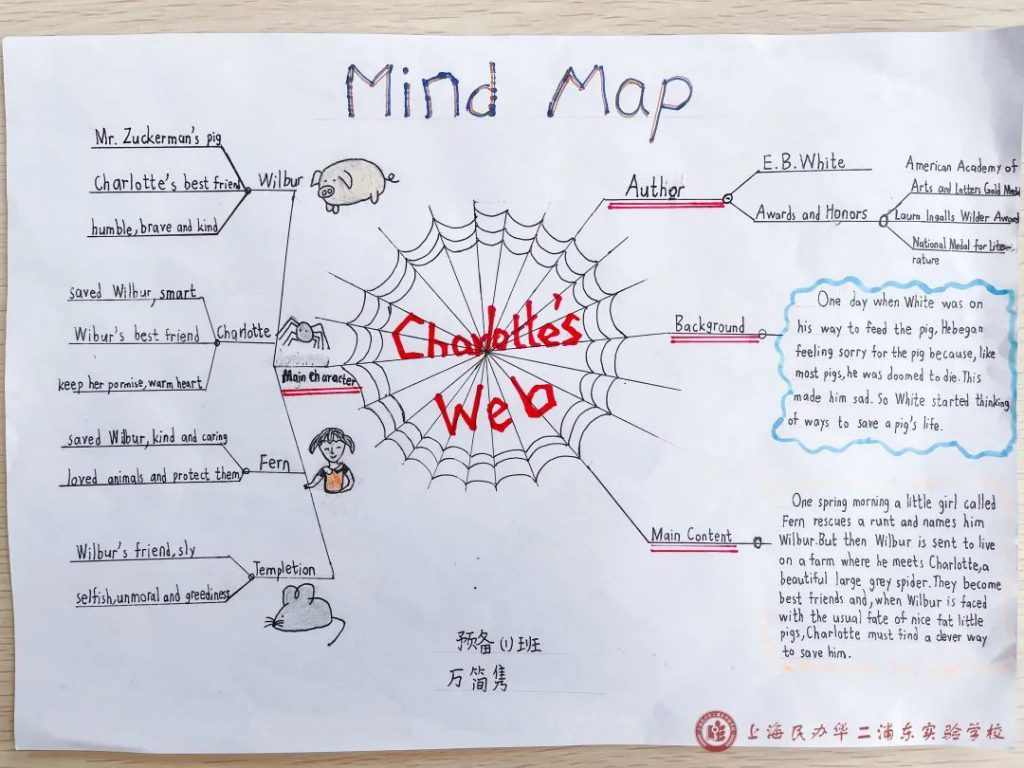 Mind Map
Mr. Zuckerman's pig
Charlotte's best friend
humble, brave and kind
Wilbur
saved Wilbur, smart
Wibur's best friend
keep her pormise, warm heart
Charlotte
Main Character
saved Wilbur, kind and caring
loved animals and protect them
Fern
Wilbur's friend, sly
selfish, unmoral and greediness
Templetion
Charlotte's
Web
Author
E.B. White
Awards and Honors
American Academy of
Arts and Letters Gold Medal
Laura Ingalls Wilder Award
National Medal for Lite-
rature
Background
One day when White was on
his way to feed the pig, Hebegan
feeling sorry for the pig because, like
most pigs, he was doomed to die. This
made him sad. So White started thinking
of ways to save a pig's life.
Main Content
One spring morning a little girl called
Fern rescues a runt and names him
Wilbur. But then Wilbur is sent to live
on a farm where he meets Charlotte, a
beautiful large grey spider. They become
best friends and, when Wilbur is faced
with the usual fate of nice fat little
pigs, Charlotte must find a clever way
to save him.
预备(1)班
万简隽
上海民办华二浦东实验学校